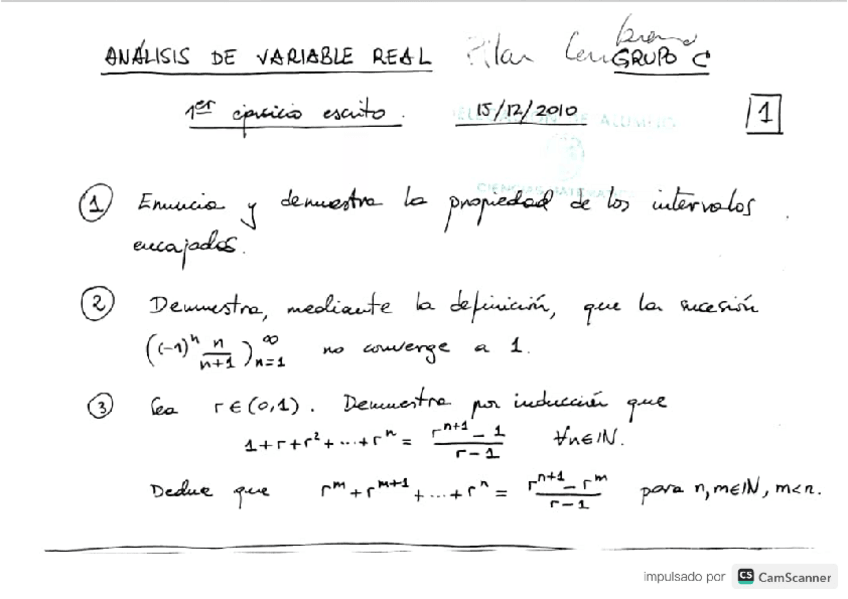 ANÁLISIS DE VARIABLE REAL Pilar
GRUPO C
1er ejercicio escrito. 15/12/2010 1
DELEGACIÓN DE ALUMNOS
CIENCIAS MATEMÁTICAS
① Enuncia y demuestra la propiedad de los intervalos
encajados.
② Demuestra, mediante la definición, que la sucesión
((-1)^n n/(n+1))_{n=1}^∞ no converge a 1.
③ Sea r∈(0,1). Demuestra por inducción que
1+r+r²+...+r^n = (r^{n+1}-1)/(r-1) ∀n∈ℕ.
Deduce que r^m+r^{m+1}+...+r^n = (r^{n+1}-r^m)/(r-1) para n,m∈ℕ, m<n.
impulsado por CS CamScanner